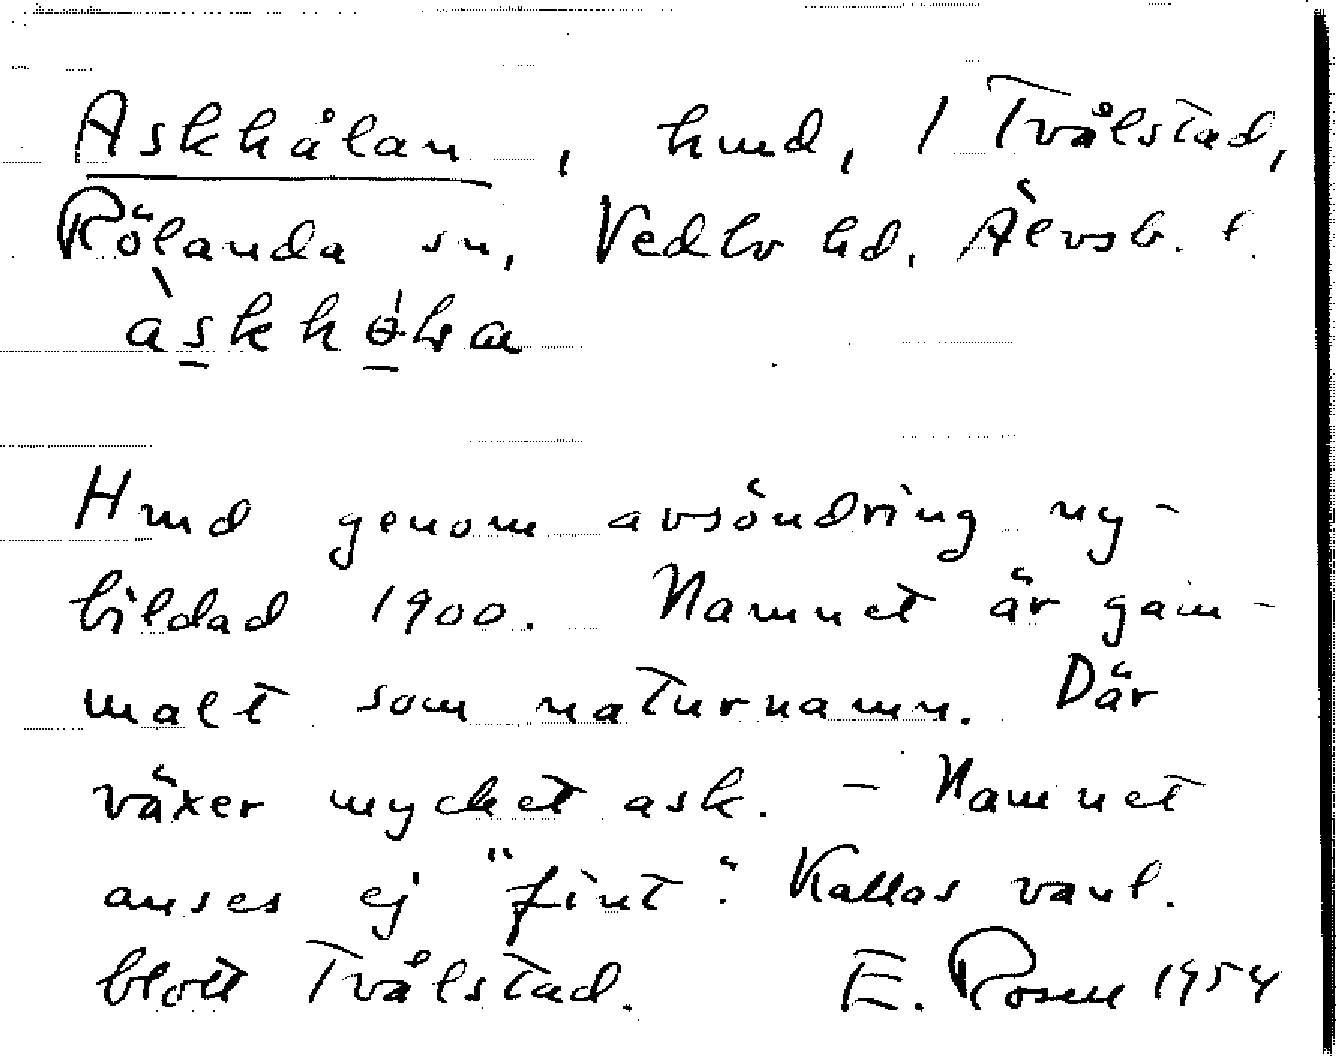 Askhålan, hmd, 1 Tvålstad,
Rölanda sn, Vedbo hd, Älvsb. l.
àskhɵ́la
Hmd genom avsöndring ny-
bildad 1900. Namnet är gam-
malt som naturnamn. Där
växer mycket ask. – Namnet
anses ej "fint". Kallas vanl.
blott Tvålstad. E. Rosell 1954